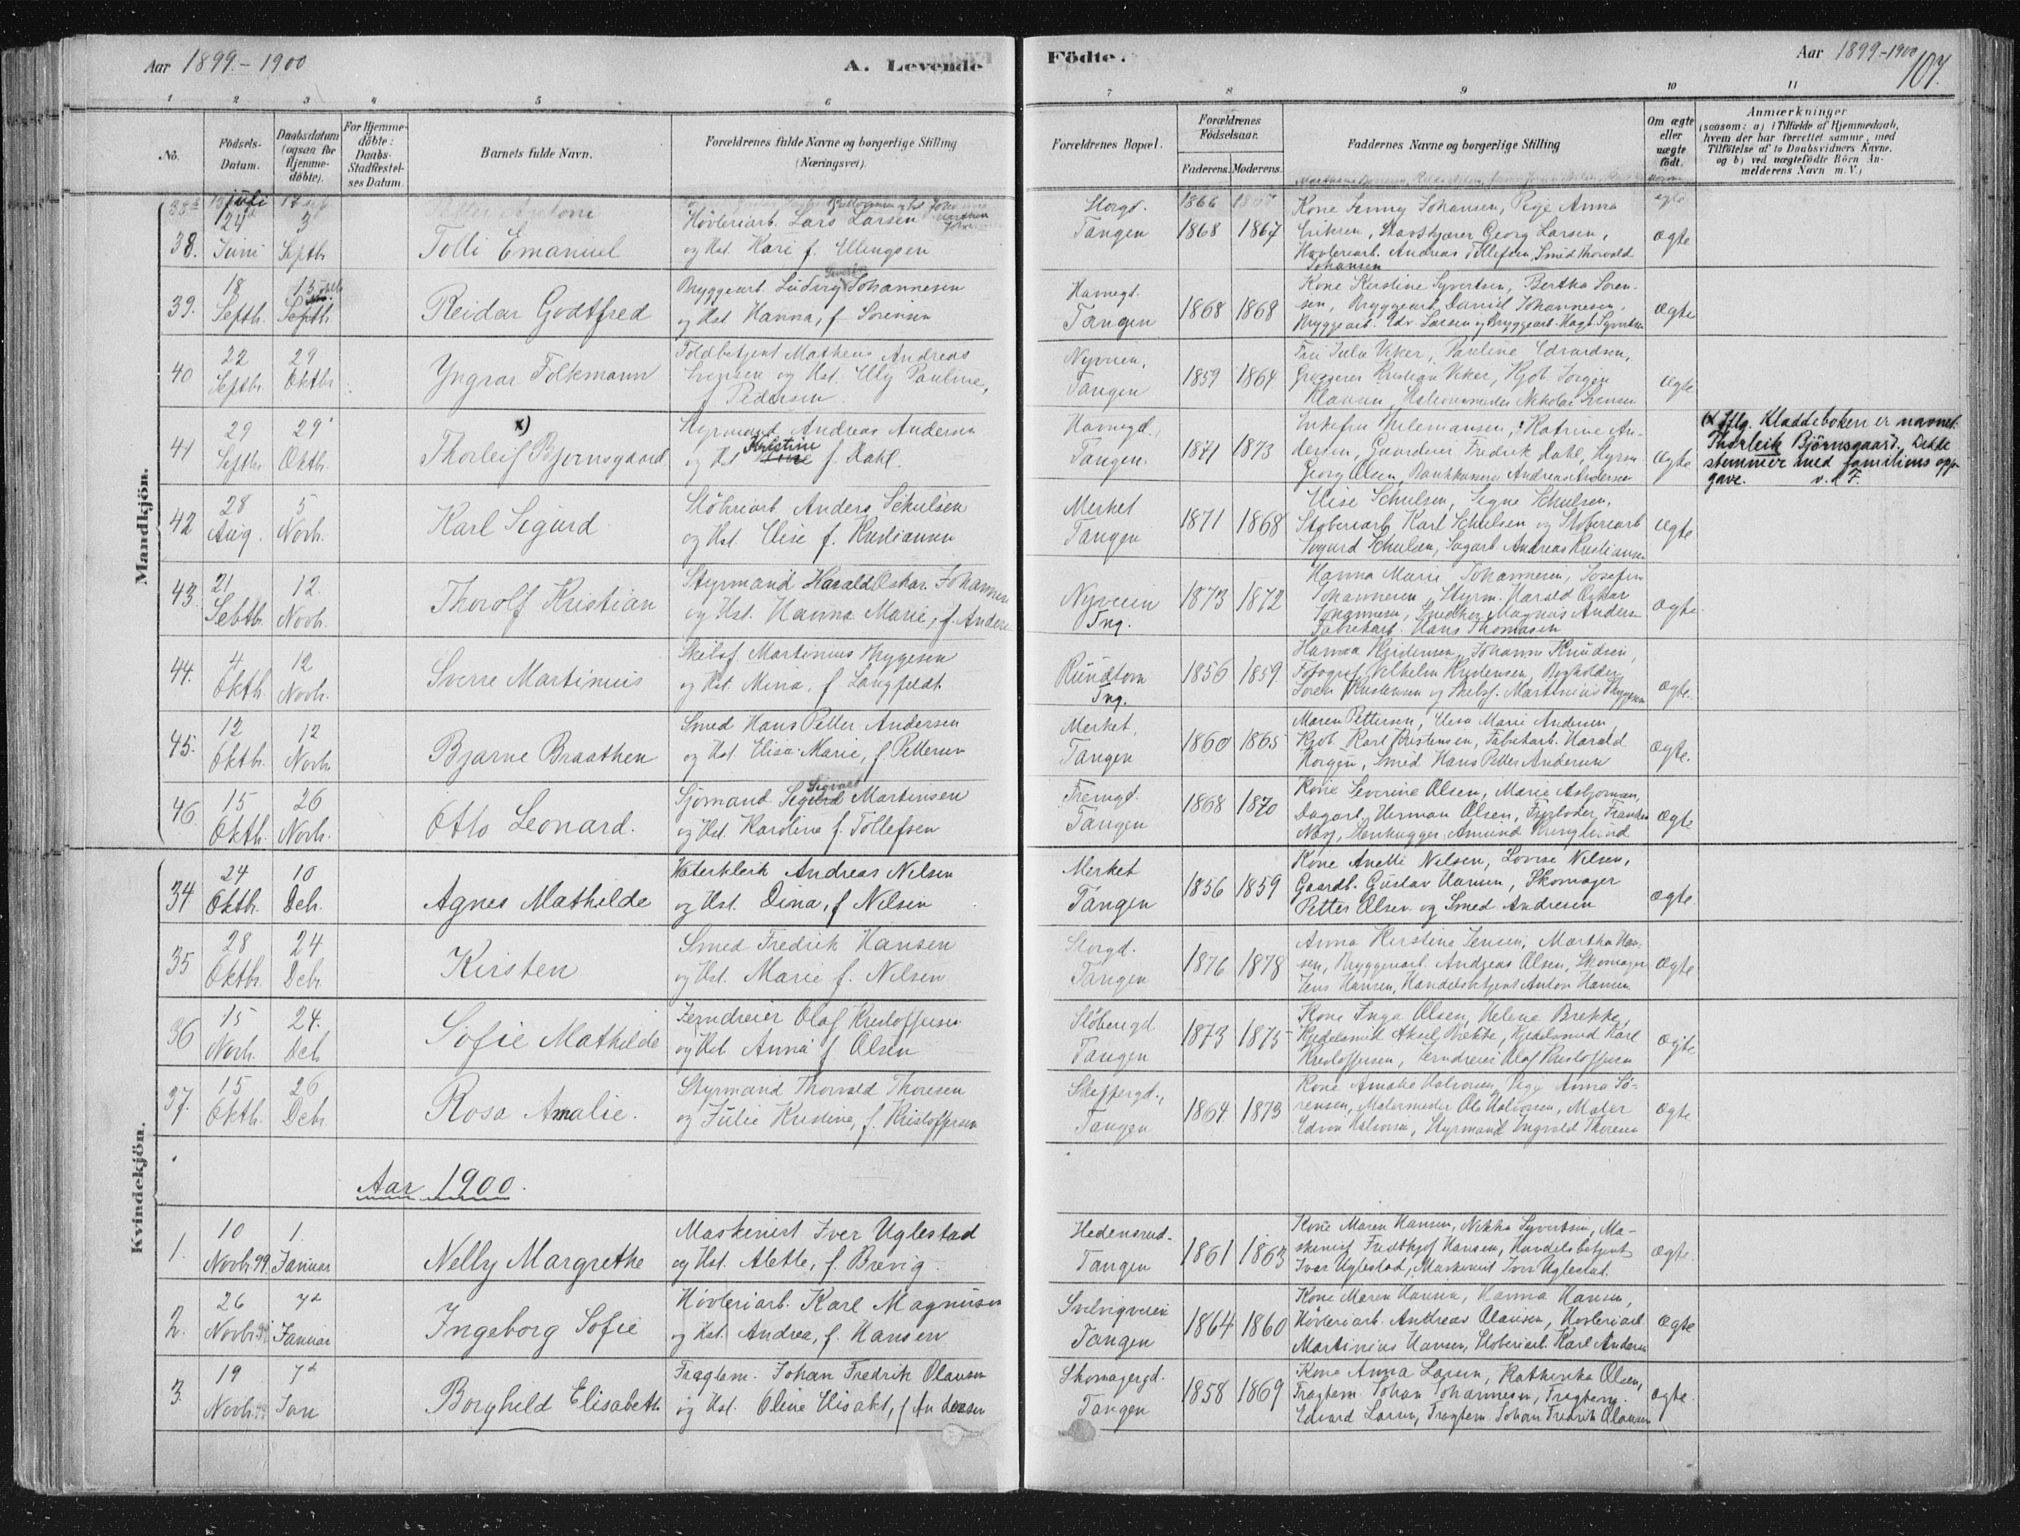 Aar 1899-1900
A. Levende
Födte.
Aar 1899-1900
107.
1 2 3 4 5 6 7 8 9 10 11
No.
Födsels-
Datum.
Daabsdatum
(ogsaa for
Hjemme-
döbte).
For Hjemme-
döbte:
Daabs-
Stadfæstel-
ses Datum.
Barnets fulde Navn.
Forældrenes fulde Navne og borgerlige Stilling
(Næringsvei).
Forældrenes Bopæl.
Forældrenes
Födselsaar.
Faderens. Moderens.
Faddernes Navne og borgerlige Stilling
Om ægte
eller
uægte
födt.
Anmærkninger
(saasom: a) i Tilfælde af Hjemmedaab,
hvem der har forrettet samme, med
Tilföielse af to Daabsvidners Navne,
og b) ved uægtefödte Börn An-
melderens Navn m. V.)
Mandkjön.
Storgd. 1866 Kone Jenny Johansen, Pige Anna
38. 24 Juni 3 Septb. Tolli Emanuel
Høvleriarb. Lars Larsen
og Hst. Kari f. Ellingsen
Tangen 1868 1867
Eriksen, Georg Larsen,
Høvleriarb. Andreas Tollefsen, Smed Thorvald
Johansen
Ægte
39. 18 Septb. 15 Reidar Godtfred
Bryggearb. Ludvig Johannesen
og Hst. Hanna, f. Sörensen
Havnegd. Tangen 1868 1868
Kone Kirstine Syvertsen, Bertha Sören-
sen, Bryggearb. Daniel Johannesen,
Bryggearb. Edv. Larsen og Bryggearb. Syvertsen
Ægte
40 22 Septbr. 29 Oktbr. Yngvar Folkmann
Toldbetjent Matheus Andreas
Svensen og Hst. Elly Pauline,
f. Pedersen.
Nyveien, Tangen 1859 1864
Julie Eker, Pauline Edvardsen,
Grosserer Kristian Eker, Kjøb. Jörgen
Klausen, Nikolai Svensen
Ægte
41 29 Septbr. 29 Oktb. Thorleif Bjornsgaard x)
Styrmand Andreas Andersen
og Hst. Kristine f. Dahl.
Havnegd., Tangen. 1871 1873
Katrine An-
dersen, Gaardeier Fredrik Dahl, Styrm.
Georg Olsen, Andreas Andersen
Ægte
(x Iflg. Kladdeboken er navnet
Thorleik Bjørnsgaard. Dette
stemmer med familiens opp-
gave. v. d. F.
42 28 Aug. 5 Novb. Karl Sigurd
Støberiarb. Anders Schulsen
og Hst. Elise f. Kristiansen
Merket Tangen 1871 1868
Elise Schulsen, Signe Schulsen,
Støberiarb. Karl Schulsen og Støberiarb.
Sigurd Schulsen, Sagarb. Andreas Kristiansen
Ægte
43. 21 Septbr. 12 Novb. Thorolf Kristian
Styrmand Harald Oskar Johannesen
og Hst. Hanna Marie, f. Anders
Nyveien Tng. 1873 1872
Hanna Marie Johannesen, Josefin
Johannesen, Styrm. Harald Oskar
Johannesen, Magnus Anders
Fabrikarb. Hans Thomasen
Ægte
44. 4 Oktb. 12 Novb. Sverre Martinius
Skibsf. Martinius Bryggesen
og Hst. Mina, f. Langfeldt.
Rundtom Tng. 1856 1859
Hanna Kristensen, Johanne Knudsen,
Fotograf Vilhelm Kristensen, Bogholder
Sören Kristensen og Skibsf. Martinius Bryggesen
Ægte
45. 12 Oktbr. 12 Novb. Bjarne Braathen
Smed Hans Petter Andersen
og Hst. Elisa Marie, f. Pettersen
Merket, Tangen 1860 1865
Maren Pettersen, Elisa Marie Andersen,
Kjøb. Karl Kristensen, Fabrikarb. Harald
Horgen, Smed Hans Petter Andersen
Ægte.
46. 15 Oktb. 26 Novb. Otto Leonard.
Sigvart
Sjömand Sigurd Martinsen
og Hst. Karoline f. Tollefsen
Fremgd. Tangen 1868 1870
Kone Severine Olsen, Marie Asbjornsen,
Dagarb. Herman Olsen, Fyrbøder
Stenhugger Amund Ringlund
Ægte
Kvindekjön.
34 24 Oktbr. 10 Deb. Agnes Mathilde
Andreas Nilsen
og Hst. Dina, f. Nilsen
Merket Tangen 1856 1859
Kone Anette Nilsen, Lovise Nilsen,
Gaardb. Gustav Hansen, Skomager
Petter Olsen og Smed Andresen
Ægte.
35 28 Oktbr. 24 Debr. Kirsten
Smed Fredrik Hansen
og Hst. Marie f. Nilsen
Storgd. Tangen 1876 1878
Anna Kirstine Jensen, Martha Han-
sen, Bryggeriarb. Andreas Olsen, Skomager
Jens Hansen, Handelsbetjent Anton Hansen
Ægte
36 15 Novb. 24. Deb. Sofie Mathilde
Jerndreier Olaf Kristoffersen
og Hst. Anna f. Olsen
Støberigd. Tangen 1873 1875
Kone Inga Olsen, Helene Brekke,
Kjedelsmed Aksel Brekke, Kjedelsmed Karl
Kristoffersen, Jerndreier Olaf Kristoffersen
Ægte
37. 15 Oktbr. 26 Debr. Rosa Amalie.
Styrmand Thorvald Thoresen
og Julie Kristine, f. Kristoffersen
Skippergd., Tangen 1864 1873
Kone Amalie Halvorsen, Pige Anna Sö-
rensen, Malermester Ole Halvorsen, Maler
Edvin Halvorsen, Styrmand Ingvald Thoresen
Ægte
Aar 1900.
1. 10 Novb. 99 1. Januar Nelly Margrethe
Maskenist Iver Uglestad
og Hst. Alette, f. Brevig.
Hedensrud. Tangen 1861 1863
Kone Maren Hansen, Nikka Syvertsen, Ma-
skenist Fredthjof Hansen, Handelsbetjent
Ivar Uglestad, Maskenist Iver Uglestad.
Ægte.
2. 26 Novb. 7de Januar Ingeborg Sofie
Høvleriarb. Karl Magnussen
og Hst. Andrea, f. Hansen
Svelvigveien Tangen 1864 1860
Kone Maren Hansen, Hanna Hansen,
Høvleriarb. Andreas Olausen, Høvleriarb.
Martinius Hansen, Støberiarb. Karl Andersen
Ægte
3. 19 Novb. 7de Jan Borghild Elisabeth
Fragtem. Johan Fredrik Olausen
og Hst. Oline Elisabt., f. Andersen
Skomagergd. Tangen 1858 1869
Kone Anna Larsen, Kathinka Olsen,
Fragtem. Johan Johannesen,
Edvard Larsen, Fragtem. Johan Fredrik Olausen
Ægte.